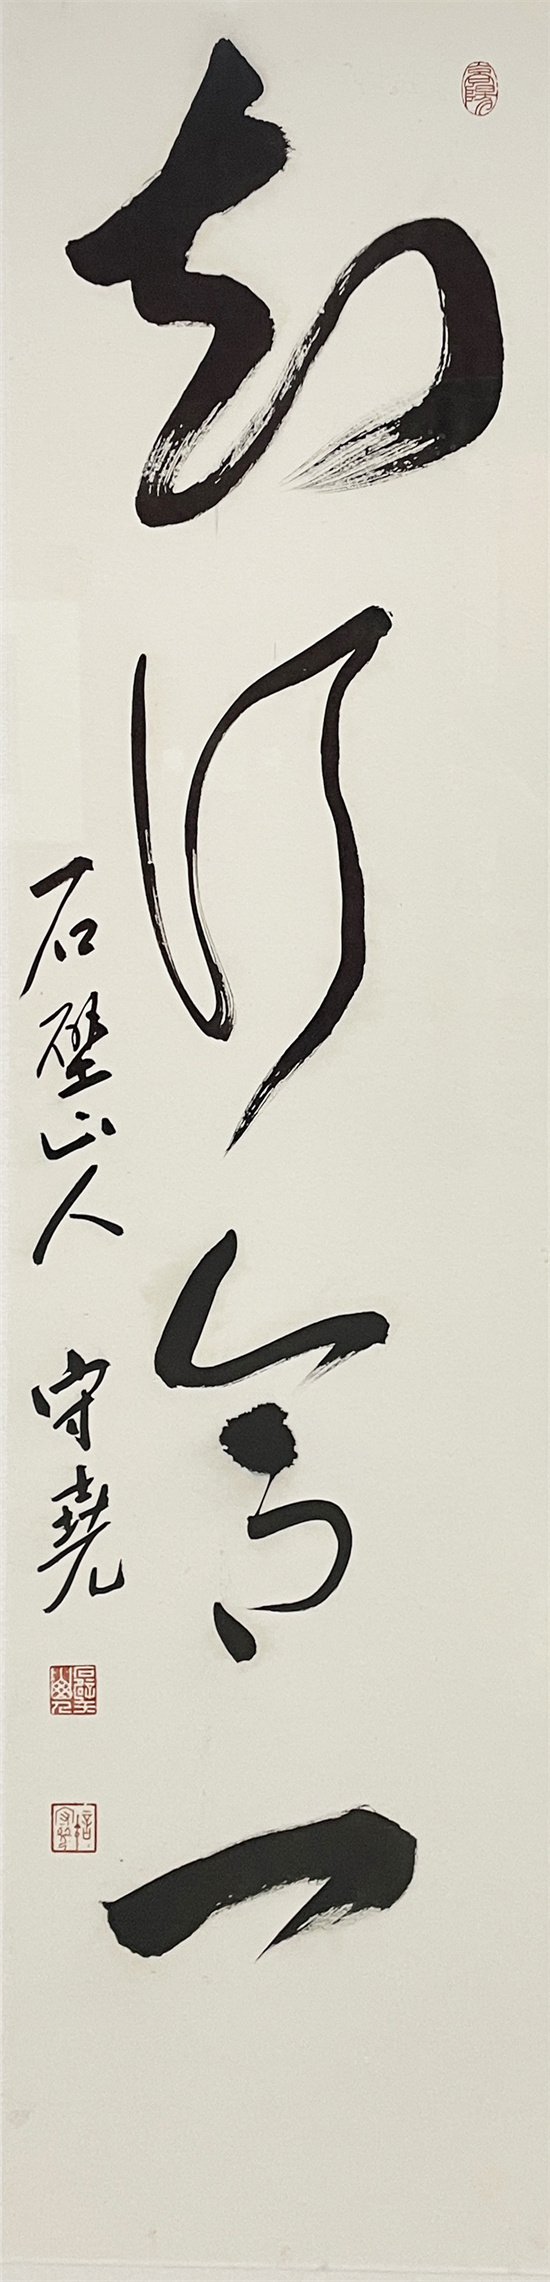 知行合一
石壁山人 守堯